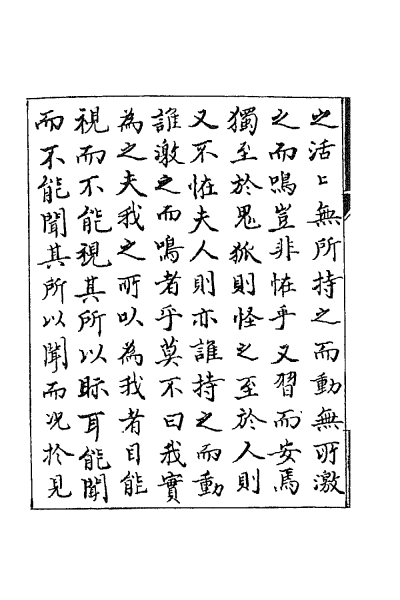 之活〻無所持之而動無所激
之而鳴豈非恠乎又習而安焉
獨至於鬼狐則怪之至於人則
又不恠夫人則亦誰持之而動
誰激之而鳴者乎莫不曰我實
為之夫我之所以為我者目能
視而不能視其所以眎耳能聞
而不能聞其所以聞而况於見